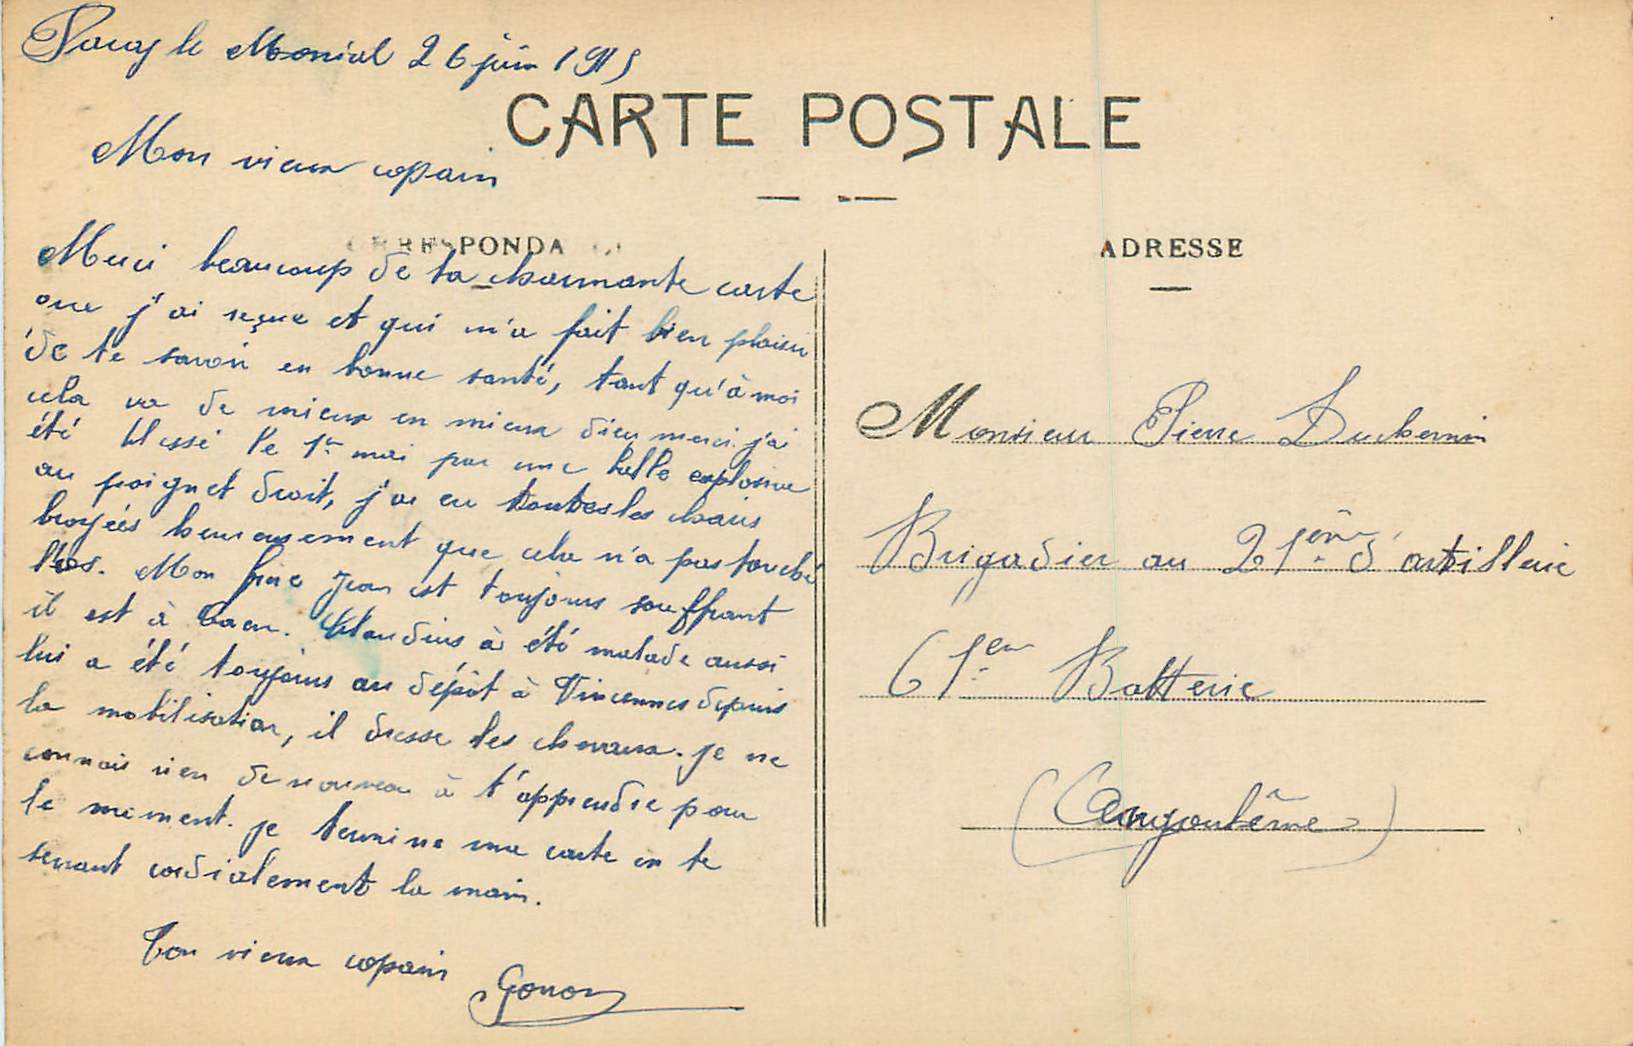 Paray le Monial 26 juin 1915
CARTE POSTALE
Mon vieux copain
CORRESPONDA
Merci beaucoup de ta charmante carte
que j'ai reçue et qui m'a fait bien plaisir
de te savoir en bonne santé, tant qu'à moi
cela va de mieux en mieux dieu merci. j'ai
été blessé le 1er mai par une balle explosive
au poignet droit, j'ai eu toutes les chairs
broyées heureusement que cela n'a pas touché
l'os. Mon frère Jean est toujours souffrant
il est à Caen. Claudius à été malade aussi
lui a été toujours au dépôt à Vincennes depuis
la mobilisation, il dresse les chevaux. je ne
connais rien de nouveau à t'apprendre pour
le moment. je termine ma carte en te
serrant cordialement la main.
Ton vieux copain Gonon
ADRESSE
Monsieur Pierre
Brigadier au 21ème d'artillerie
61em Batterie
(Angoulême)